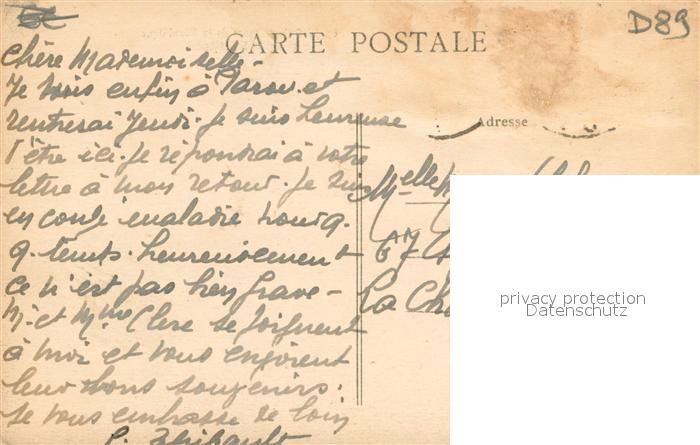 D89
CARTE POSTALE
Chère Mademoiselle -
Je suis enfin à et
rentrerai Jeudi. Je suis heureuse
d'être ici. Je répondrai à votre
lettre à mon retour. Je suis
en congé maladie pour q.
q. temps. heureusement
ce n'est pas bien grave -
M. et Mme Clere se joignent
à moi et vous envoient
leurs bons souvenirs.
Je vous embrasse de loin
Adresse
Melle
67
La
privacy protection
Datenschutz